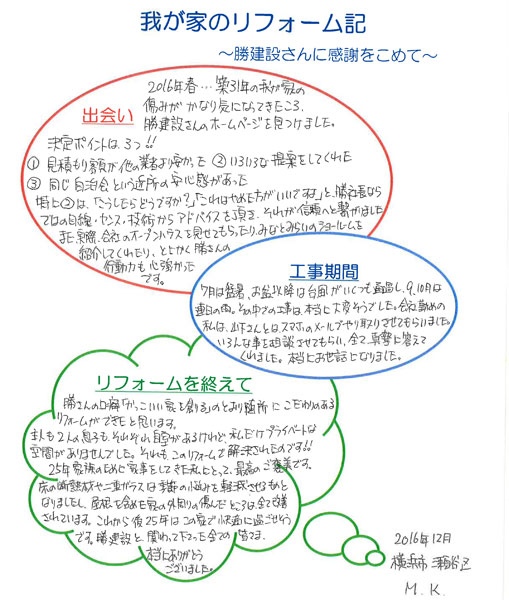 我が家のリフォーム記
～勝建設さんに感謝をこめて～
出会い
2016年春…築31年の我が家の
傷みがかなり気になってきたころ、
勝建設さんのホームページを見つけました。
決定ポイントは、3つ!!
① 見積もり額が他の業者より安かった ② いろいろな提案をしてくれた
③ 同じ自治会という近所の安心感があった
特に②は、「こうしたらどうですか?」「これはやめた方がいいですね」と、勝社長なら
ではの目線・センス・技術からアドバイスを頂き、それが信頼へと繋がりました
また実際、会社のオープンハウスを見せてもらったり、みなとみらいのショールームを
紹介してくれたり、とにかく勝さんの
行動力も心強かった
です。
工事期間
7月は猛暑、お盆以降は台風がいくつも通過し、9,10月は
連日の雨。その中での工事は、本当に大変そうでした。会社勤めの
私は、山下さんとは、スマホのメールでやり取りさせてもらいました。
いろんな事を相談させてもらい、全て、真摯に答えて
くれました。本当にお世話になりました。
リフォームを終えて
勝さんの口癖「かっこいい家を創る」のとおり随所にこだわりのある
リフォームができたと思います。
主人も2人の息子も、それぞれ自室があるけれど、私だけプライベートな
空間がありませんでした。それも、このリフォームで解決されたのです!!
25年家族のために家事をしてきた私にとって、最高のご褒美です。
床の断熱材や二重ガラスは季節の悩みを軽減させるものと
なりましたし、屋根を含めた家の外周りの傷んだところは、全て補修
されています。これから後25年はこの家で快適に過ごせそう
です。勝建設と関わって下さった全ての皆さま、
本当にありがとう
ございました。
2016年12月
横浜市 瀬谷区
M.K.